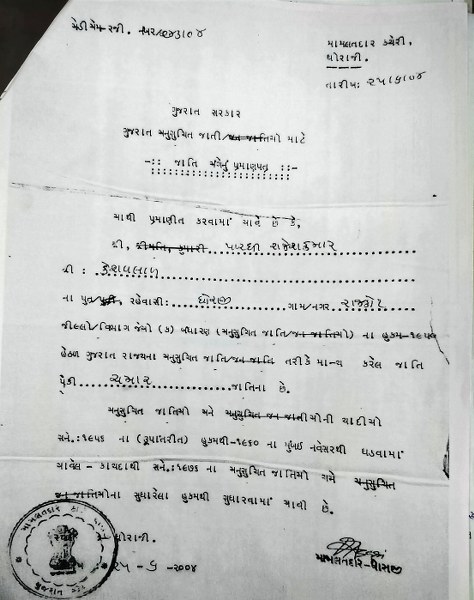 મામલતદાર કચેરી,
ધોરાજી.
તારીખ: ૨૫/૬/૦૪
ગુજરાત સરકાર
ગુજરાત અનુસુચિત જાતી/જન જાતિઓ માટે
-:: જાતિ અંગેનું પ્રમાણપત્ર ::-
આથી પ્રમાણીત કરવામાં આવે છે કે,
શ્રી, શ્રીમતિ, કુમારી. પરમાર રાજેશકુમાર
શ્રી : કેશવલાલ
ના પુત્ર/પુત્રી, રહેવાસી: ધોરાજી ગામ/નગર રાજકોટ
જીલ્લો/વિભાગ જેઓ (ક) બંધારણ (અનુસુચિત જાતિ/જન જાતિઓ) ના હુકમ-૧૯૫૦
હેઠળ ગુજરાત રાજ્યના અનુસુચિત જાતિ/જન જાતિ તરીકે માન્ય કરેલ જાતિ
પૈકી ચમાર જાતિના છે.
અનુસુચિત જાતિઓ અને અનુસુચિત જન જાતીઓની યાદીઓ
સને.:૧૯૫૬ ના (રૂપાંતરીત) હુકમથી-૧૯૬૦ ના મુંબઈ નવેસરથી ઘડવામાં
આવેલ - કાયદાથી સને.:૧૯૭૬ ના અનુસુચિત જાતિઓ અને અનુસુચિત
જન જાતિઓના સુધારેલા હુકમથી સુધારવામાં આવી છે.
ધોરાજી.
૨૫ - ૬ -૨૦૦૪
મામલતદાર-ધોરાજી